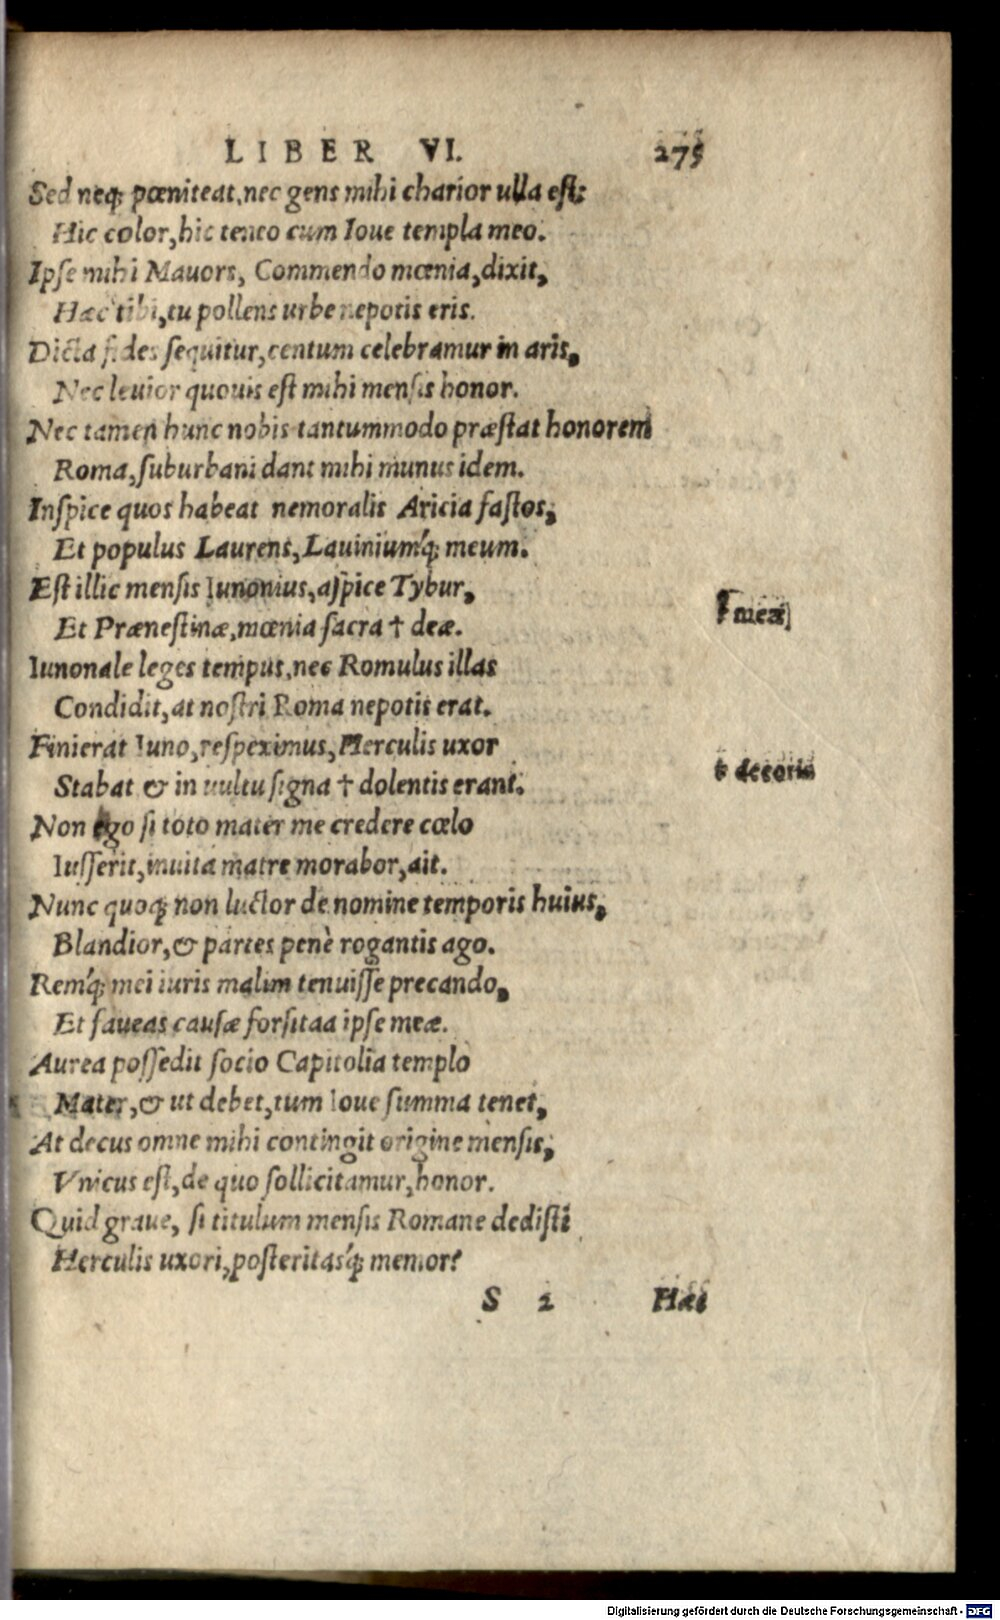 LIBER VI. 275
Sed neq; pœniteat, nec gens mihi charior ulla est:
Hic color, hic teneo cum Ioue templa meo.
Ipse mihi Mauors, Commendo mœnia, dixit,
Hæc tibi, tu pollens urbe nepotis eris.
Dicta fides sequitur, centum celebramur in aris,
Nec leuior quouis est mihi mensis honor.
Nec tamen hunc nobis tantummodo præstat honorem
Roma, suburbani dant mihi munus idem.
Inspice quos habeat nemoralis Aricia fastos,
Et populus Laurens, Lauiniumq́; meum.
Est illic mensis Iunonius, aspice Tybur,
Et Prænestinæ, mœnia sacra † deæ.
† meæ
Iunonale leges tempus, nec Romulus illas
Condidit, at nostri Roma nepotis erat.
Finierat Iuno, respeximus, Herculis uxor
Stabat & in uultu signa † dolentis erant.
† decoris
Non ego si toto mater me credere cœlo
Iusserit, inuita matre morabor, ait.
Nunc quoq; non luctor de nomine temporis huius,
Blandior, & partes penè rogantis ago.
Remq́; mei iuris malim tenuisse precando,
Et faueas causæ forsitaa ipse meæ.
Aurea possedit socio Capitolia templo
Mater, & ut debet, tum Ioue summa tenet,
At decus omne mihi contingit origine mensis,
Vnicus est, de quo sollicitamur, honor.
Quid graue, si titulum mensis Romane dedisti
Herculis uxori, posteritasq́; memor?
S 2 Hæc
Digitalisierung gefördert durch die Deutsche Forschungsgemeinschaft - DFG